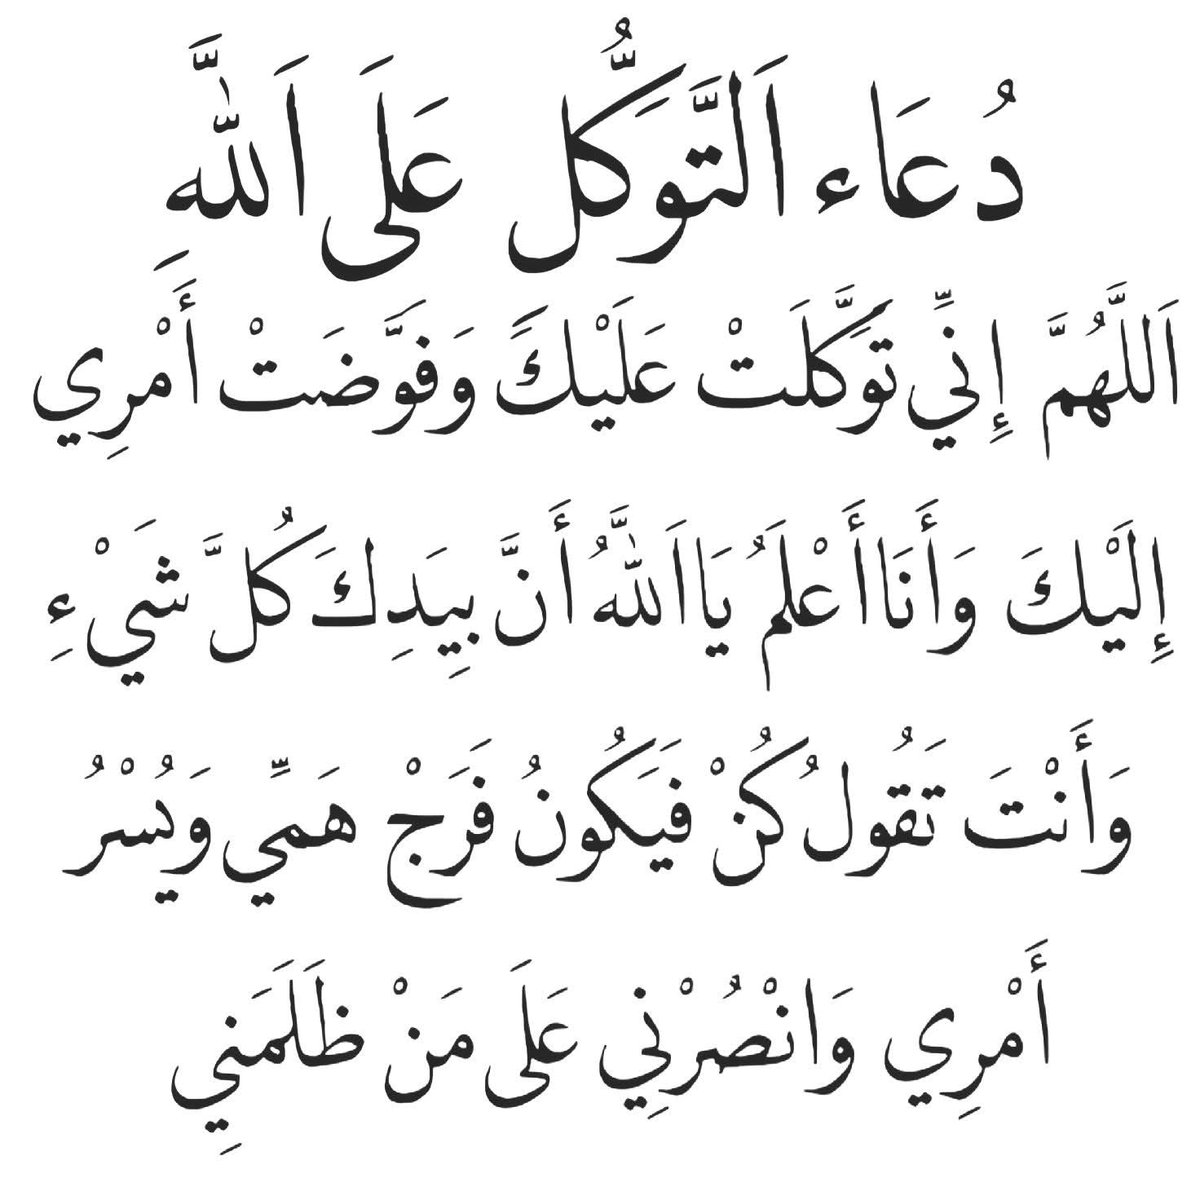 دُعَاء اَلتَّوَكُّل عَلَى اَللَّه
اَللَّهُمَّ إِنِّي تَوَكَّلَتْ عَلَيْكَ وَفَوَّضَتْ أَمْرِي
إِلَيْكَ وَأَنَا أَعْلَمُ يَا اَللَّهُ أَنَّ بِيَدِكَ كُلَّ شَيْءٍ
وَأَنْتَ تَقُولُ كُنْ فَيَكُونُ فَرَجْ هَمِّي وَيُسْرُ
أَمْرِي وَانْصُرْنِي عَلَى مَنْ ظَلَمَنِي